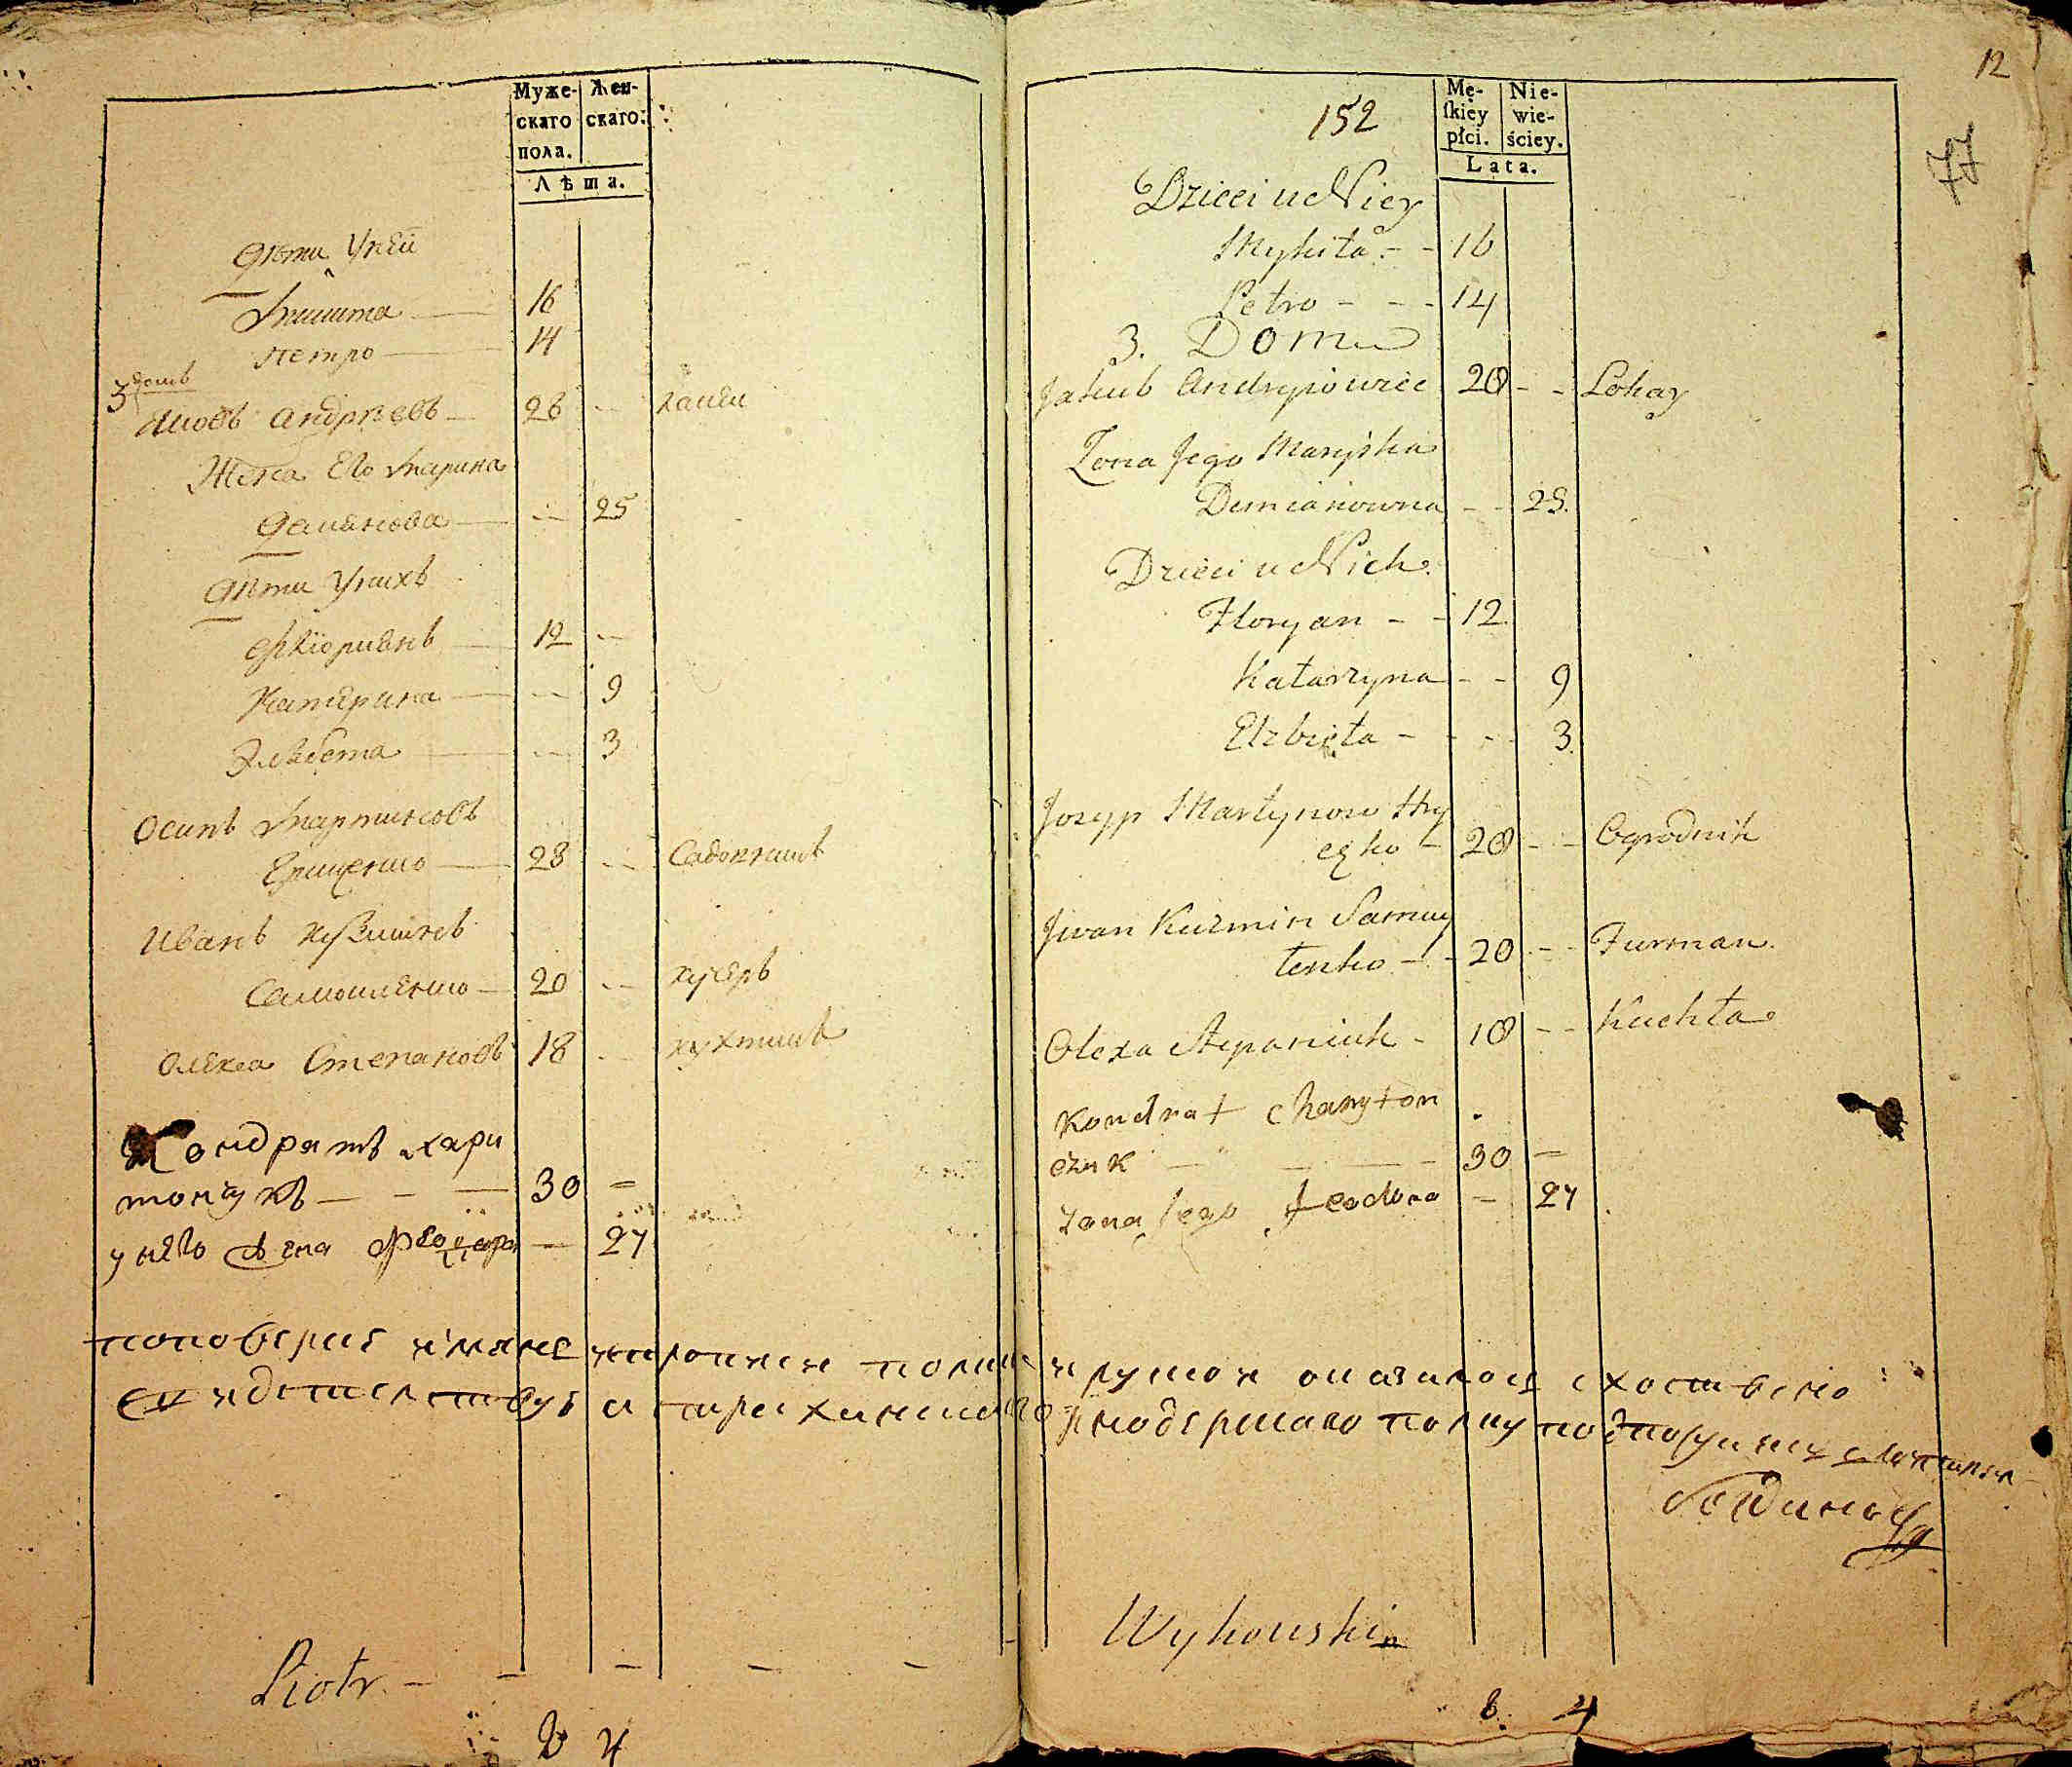 Муже-
скаго
пола.
Жен-
скаго:
Лѣта.
Дѣти У ней
Микита — 16
Петро — 14
3 домъ
Яковъ Андрѣевъ — 28 - - лакей
Жена Его Марина
Демянова — - - 25
Дѣти У нихъ
Флорианъ — 12 - -
Катерина — - - 9
Элзбета — - - 3
Осипъ Мартиновъ
Грищенко — 28 - - Садовникъ
Иванъ Кузминъ
Самойленко — 20 - - кучеръ
Олекса Степановъ 18 - - кухтикъ
Кондратъ хари
тончукъ — - — 30 —
у него жена Феодора — 27
Piotr — — — — —
8 4
12
77
152
Mę-
ſkiéy
płci.
Nie-
wie-
ściey.
Lata.
Dzieci u Niey
Mykita - - 16
Petro - - - 14
3. Dom
Jakub Andryiowicz 28 - - Lokay
Zona Jego Maryska
Demianowna - - 25.
Dzieci u Nich.
Floryan - - 12.
Katarzyna - - 9
Elzbieta - - - - 3.
Jozyp Martynow Hry
cęko - 28 - - Ogrodnik
Jwan Kuzmin Samuy
lenko - - 20 - - Furman.
Olexa Stepaniuk - 18 - - Kuchta
Kondrat Charyton
czuk — — — - 30 —
zona Jego Feodora — 27
Wykowski
8. 4